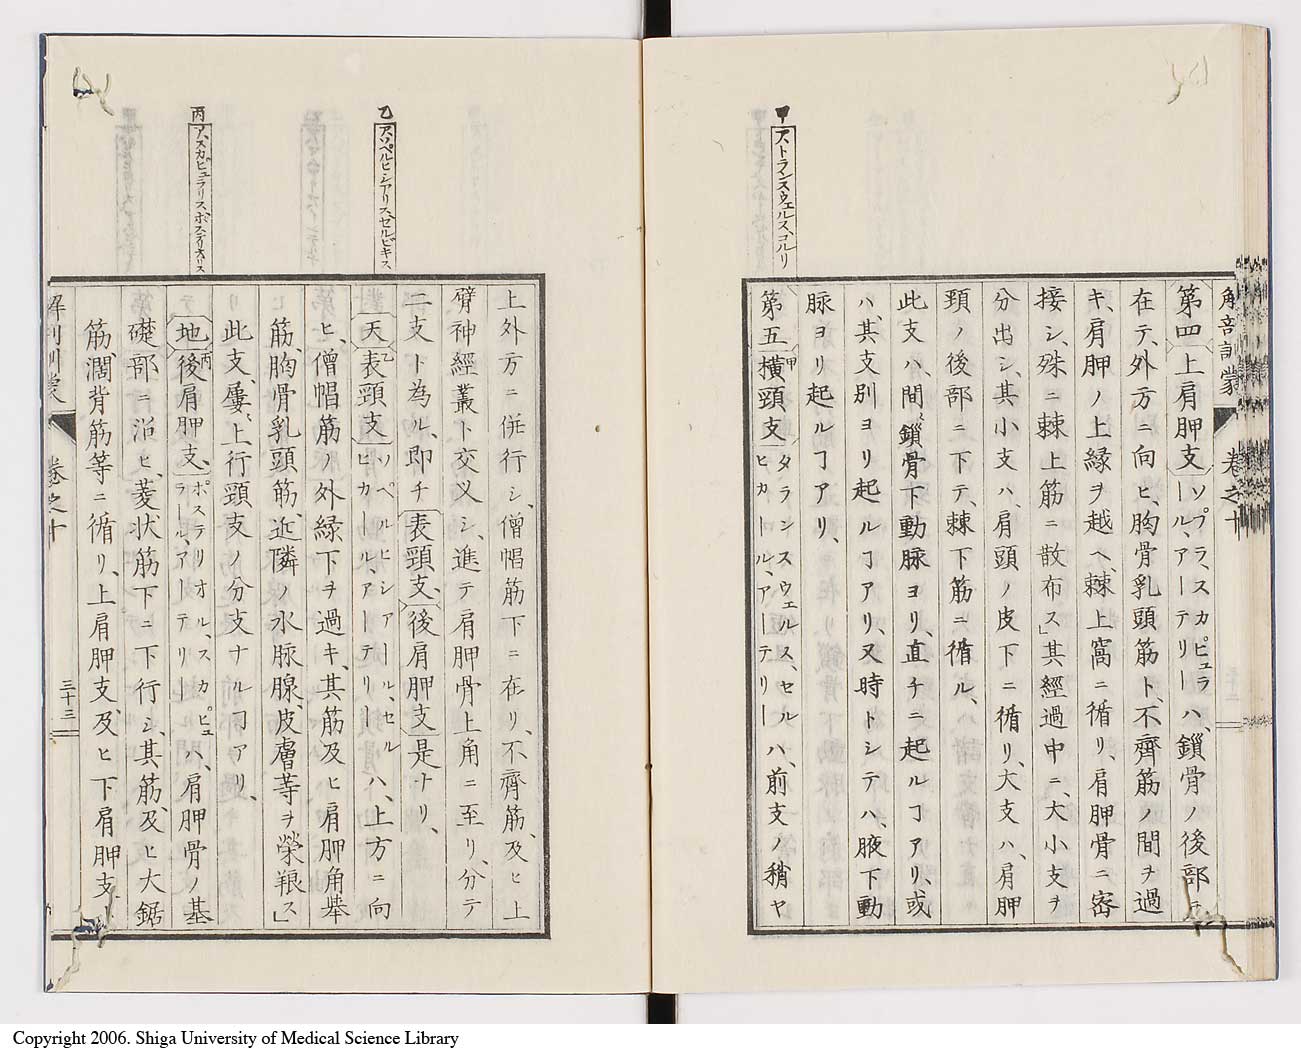 解剖訓蒙 卷之十
甲 ア、トランスウェルス、コルリ
第四上肩胛支ソプラ、スカピュラール、アーテリーハ、鎖骨ノ後部ニ
在テ、外方ニ向ヒ、胸骨乳頭筋ト、不齊筋ノ間ヲ過
キ、肩胛ノ上緣ヲ越ヘ、棘上窩ニ循リ、肩胛骨ニ密
接シ、殊ニ棘上筋ニ散布ス」其經過中ニ、大小支ヲ
分出シ、其小支ハ、肩頭ノ皮下ニ循リ、大支ハ、肩胛
頸ノ後部ニ下テ、棘下筋ニ循ル、
此支ハ、間〻鎖骨下動脉ヨリ、直チニ起ルヿアリ、或
ハ、其支別ヨリ起ルヿアリ、又時トシテハ、腋下動
脉ヨリ起ルヿアリ、
第五甲橫頸支タランスウェルス、セルヒカール、アーテリーハ、前支ノ稍ヤ
乙 ア、ソペルヒシアリス、セルビキス
丙 ア、スカピュラリス、ポステリオリス
上外方ニ併行シ、僧帽筋下ニ在リ、不齊筋、及ヒ上
臂神經叢ト交叉シ、進テ肩胛骨上角ニ至リ、分テ
二支ト為ル、即チ表頸支、後肩胛支是ナリ、
天乙表頸支ソペルヒシアール、セルヒカール、アーテリーハ、上方ニ向
ヒ、僧帽筋ノ外緣下ヲ過キ、其筋及ヒ肩胛角擧
筋、胸骨乳頭筋、近隣ノ水脉腺、皮膚等ヲ榮粮ス」
此支、屢〻上行頸支ノ分支ナルヿアリ、
地丙後肩胛支、ポステリオル、スカピュラール、アーテリーハ、肩胛骨ノ基
礎部ニ沿ヒ、菱狀筋下ニ下行シ、其筋、及ヒ大鋸
筋、濶背筋等ニ循リ、上肩胛支、及ヒ下肩胛支
解剖訓蒙 卷之十 三十三
Copyright 2006. Shiga University of Medical Science Library